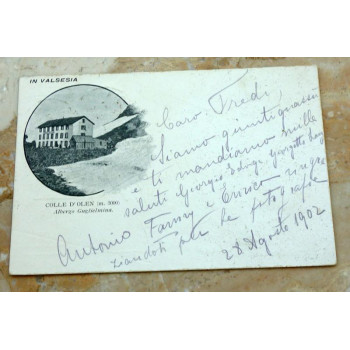 IN VALSESIA
COLLE D'OLEN (m. 3000)
Albergo Guglielmina.
Caro Fredi,
Siamo giunti quassù
e ti mandiamo mille
saluti Giorgio Edvige, Georgetto
Antonio Fanny e Enrico ringra
ziandoti per le fotografie
28 Agosto 1902